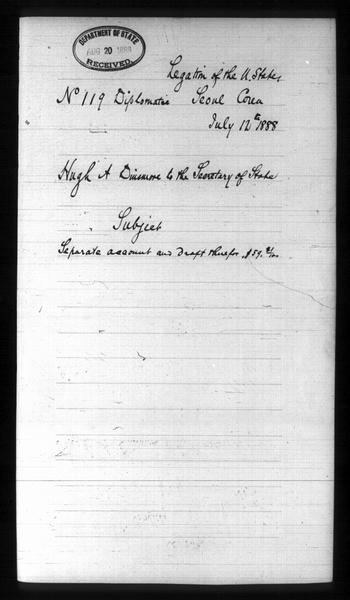 DEPARTMENT OF STATE
AUG 20 1888
RECEIVED
Legation of the U. States
No 119 Diplomatic Seoul Corea
July 12th 1888
Hugh A Dinsmore to the Secretary of State
Subject
Separate account and Draft therefor, $59.